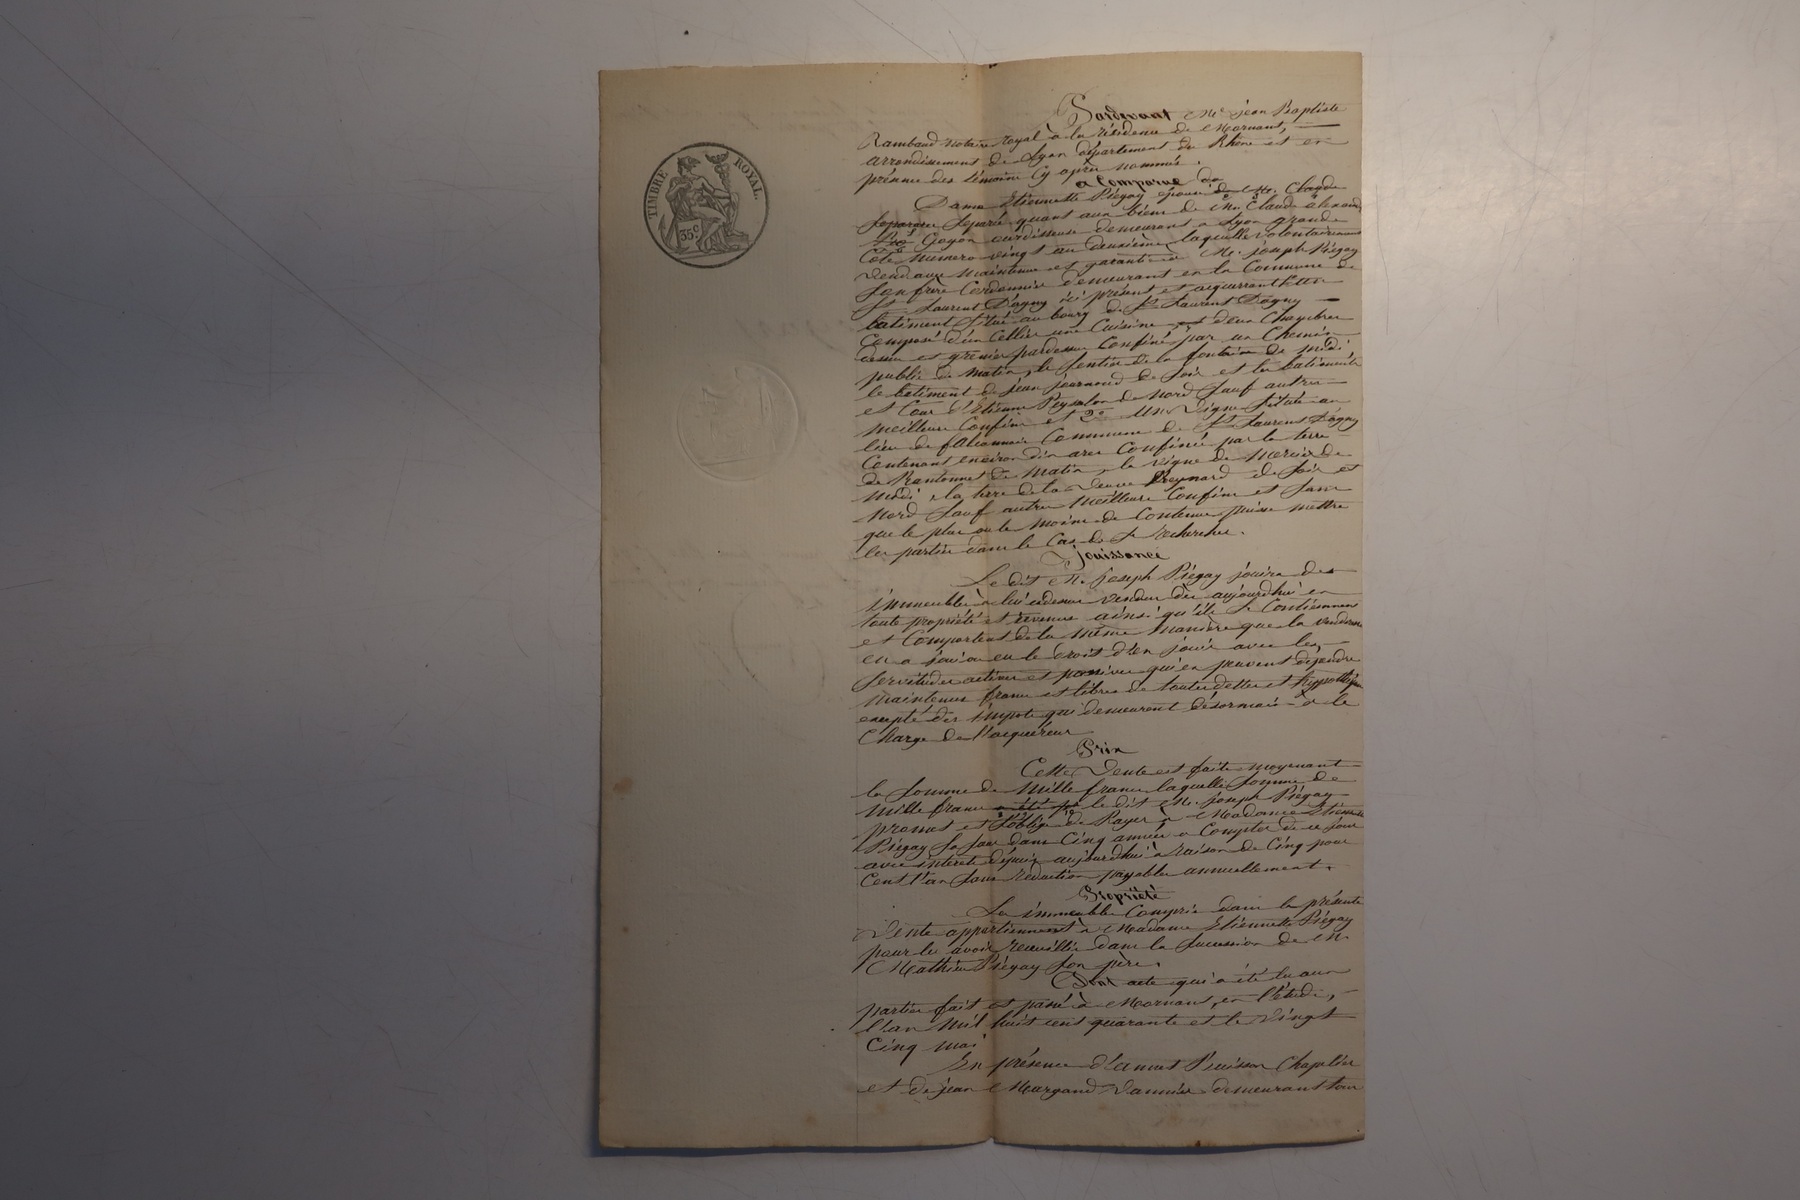 TIMBRE ROYAL
35 c.
Pardevant Me Jean Baptiste
Rambaud notaire royal à la résidence de Mornant,
arrondissement de Lyon département du Rhône et en
présence des témoins cy après nommés.
a Comparu
Dame Etiennette Piégay épouse de M. Claude
separée quant aux biens de Mr Claude
Goyon ourdisseuse demeurant à Lyon grande
Cote numero vingt au deuxième laquelle volontairement
vend avec maintenue et garantie à M. joseph Piégay
son frère Cordonnier demeurant en la Commune de
St Laurent D'agny ici présent et acquerrant
batiment situé au bourg de St Laurent D'agny
Composé d'un Cellier une Cuisine et deux Chambres
dessus et grenier pardessus Confiné par un Chemin
public de matin, le sentier de la fontaine de midi
le batiment de jean journoud de soir et les batiments
et Cour d'Etienne Peysselon de nord sauf autres
meilleurs Confins et 2° Une Vigne située au
lieu de Commune de St Laurent D'agny
Contenant environ dix ares Confinée par la terre
de de matin, la vigne de Mercier de
midi, la terre de la veuve Reynard de soir et
nord sauf autres meilleurs Confins et sans
que le plus ou le moins de Contenue puisse mettre
les parties dans le Cas de se rechercher.
Jouissance
Le dit M. joseph Piégay jouira des
immeubles à lui cidessus vendus dès aujourd'hui en
toute propriété et revenus ainsi qu'ils se Contiennent
et Comportent de la même manière que la venderesse
en a joui ou eu le droit d'en jouir avec les
servitudes actives et passives qui en peuvent dépendre
maintenus francs et libres de toutes dettes et hypothèques
excepté des impots qui demeurent désormais à la
Charge de l'acquéreur
Prix
Cette Vente est faite moyennant
la somme de Mille francs laquelle somme de
mille francs a été pa le dit M. joseph Piégay
promet et s'oblige de Payer à Madame Etiennette
Piégay sa sœur dans Cinq années à Compter de ce jour
avec intérêts depuis aujourd'hui à raison de Cinq pour
Cent l'an sans réduction payables annuellement.
Propriété
Les immeubles Compris dans la présente
Vente appartiennent à Madame Etiennette Piégay
pour les avoir recueillis dans la succession de M.
Mathieu Piégay son père.
Dont acte qui a été lu aux
parties fait et passé à Mornant, en l'étude,
l'an Mil huit cent quarante et le Vingt
Cinq mai
En présence d'annet Chapelier
et de jean Margand Vannier demeurant tous